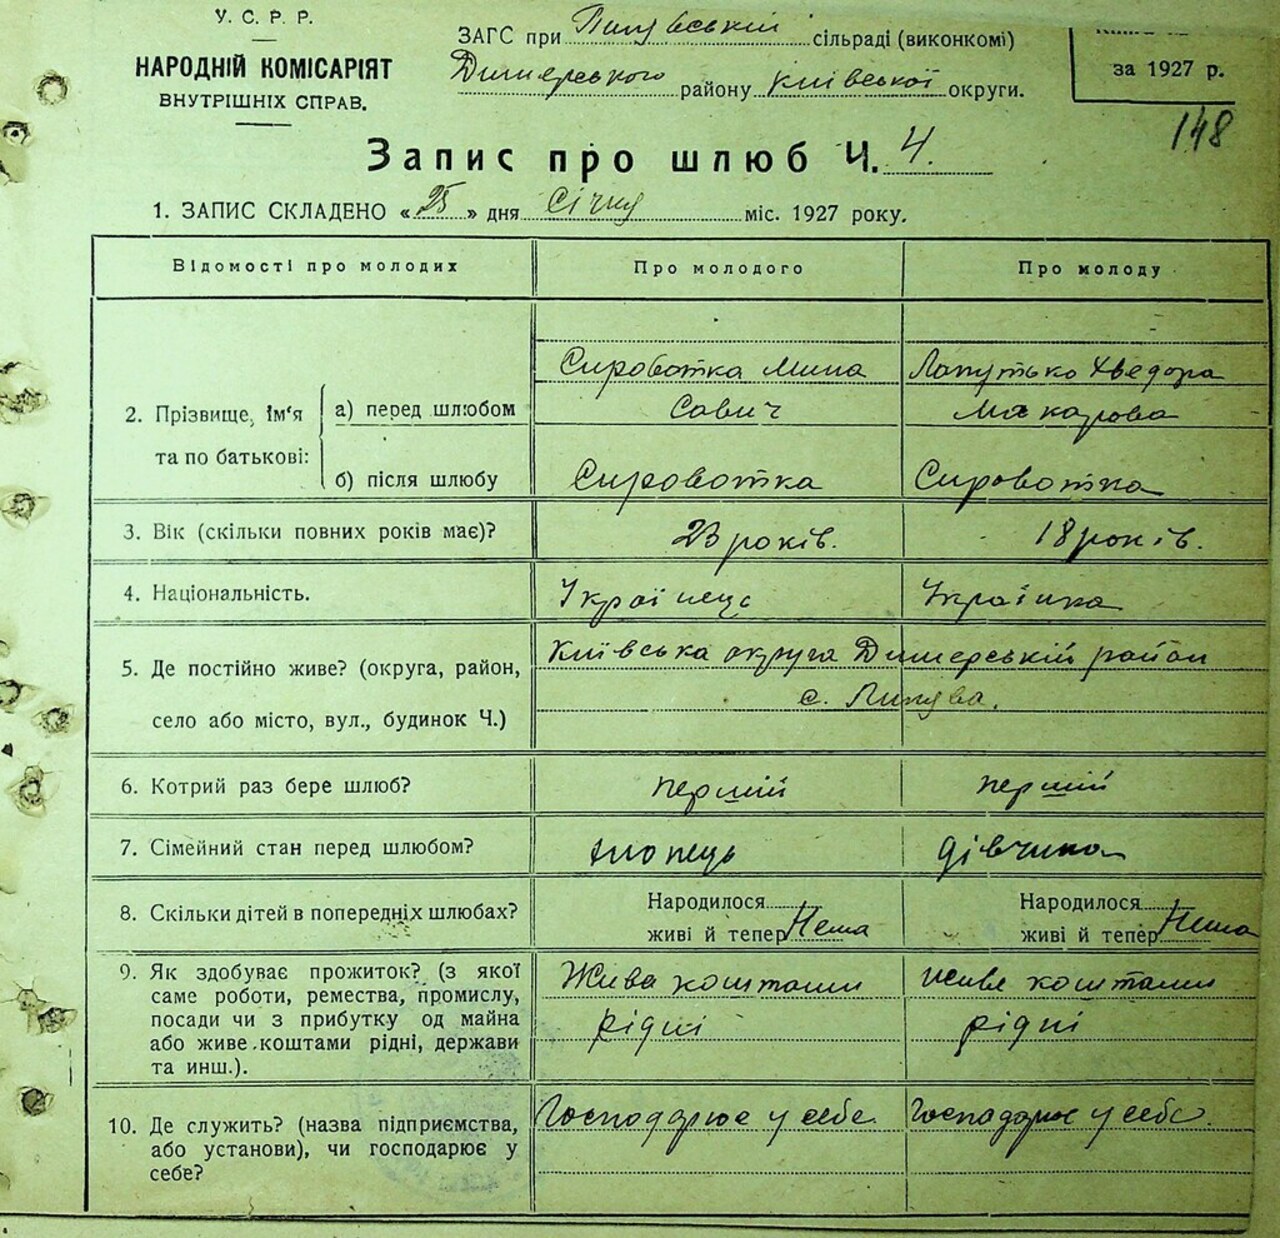 У. С. Р. Р.
НАРОДНІЙ КОМІСАРІЯТ
ВНУТРІШНІХ СПРАВ.
ЗАГС при Пилявській сільраді (виконкомі)
Димерського району Київської округи.
за 1927 р.
148
Запис про шлюб Ч. 4.
1. ЗАПИС СКЛАДЕНО «25» дня Січня міс. 1927 року.
Відомості про молодих
Про молодого
Про молоду
2. Прізвище, ім'я та по батькові:
а) перед шлюбом
Сироватка Мина
Савич
Лопутько Хведора
Макарова
б) після шлюбу
Сироватка
Сироватка
3. Вік (скільки повних років має)?
23 років.
18 років.
4. Національність.
Українець
Українка
5. Де постійно живе? (округа, район,
село або місто, вул., будинок Ч.)
Київська округа Димерській район
с.
6. Котрий раз бере шлюб?
перший
перший
7. Сімейний стан перед шлюбом?
хлопець
дівчина
8. Скільки дітей в попередніх шлюбах?
Народилося
живі й тепер Нема
Народилося
живі й тепер Нема
9. Як здобуває прожиток? (з якої
саме роботи, ремества, промислу,
посади чи з прибутку од майна
або живе коштами рідні, держави
та инш.).
Живе коштами
рідні
живе коштами
рідні
10. Де служить? (назва підприємства,
або установи), чи господарює у
себе?
Господарює у себе
Господарює у себе.